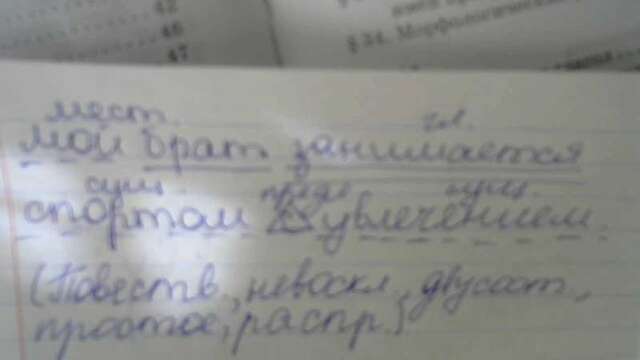 42
46
47
§ 34. Морфологический
мест. гл.
мой брат занимается
сущ. предл. сущ.
спортом с увлечением.
(Повеств., невоскл., двусост.,
простое, распр.)